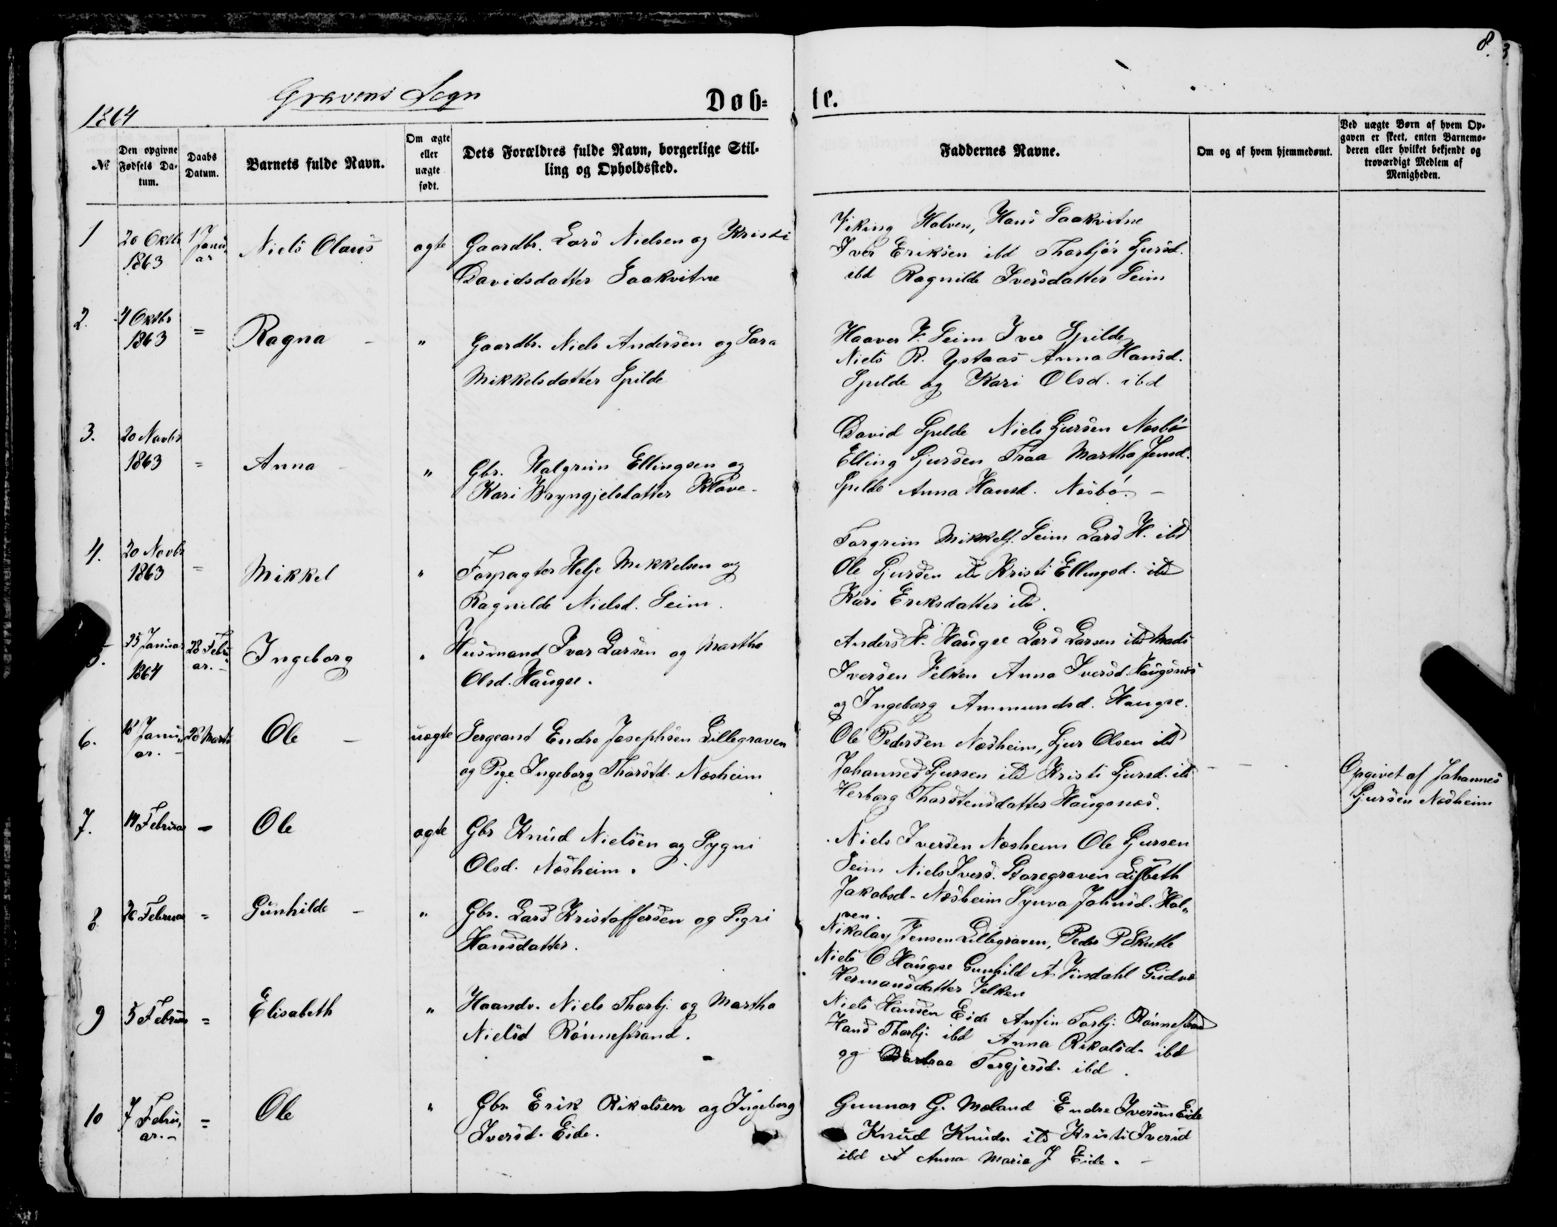 8.
1864
Gravens Sogn
Døb= te.
№
Den opgivne Fødsels Datum.
Daabs Datum.
Barnets fulde Navn.
Om ægte eller uægte født.
Dets Forældres fulde Navn, borgerlige Stilling og Opholdssted.
Faddernes Navne.
Om og af hvem hjemmedøbt.
Ved uægte Børn af hvem Opgaven er skeet, enten Barnemoderen eller hvilket bekjendt og troværdigt Medlem af Menigheden.
1 20 Oktb. 1863 1 Januar Niels Olaus ægte
Gaardbr. Lars Nielsen og Kristi
Davidsdatter Saakvitne
Viking Halven, Hans Saakvitne
Iver Eriksen ibd Thorbjør Gursd.
ibd Ragnilde Iversdatter Seim
2. 4 Oktbr 1863 = Ragna - "
Gaardbr. Niels Andersen og Sara
Mikkelsdatter Spilde
Haaver V. Seim Iver Spilde,
Niels R. Ystaas Anna Hansd.
Spilde og Kari Olsd. ibd
3. 20 Novbr 1863 = Anna - "
Gbr. Halgrim Ellingsen og
Kari Bryngjelsdatter Kløve.
David Spilde Niels Gursen Nesbø
Elling Sjursen Traa Martha
Spilde Anna Hansd. Nesbø. -
4. 20 Novbr 1863 = Mikkel "
Forpagter Helje Mikkelsen og
Ragnilde Nielsd. Seim.
Torgrim Mikkels. Seim Lars H. ibd
Ole Sjursen ibd Kristi Ellingsd. ibd
Kari Eriksdatter ibd.
5. 25 Januar 1864 28 Februar. Ingeborg "
Husmand Ivar Larsen og Martha
Olsd. Haugse.
Anders H. Haugse Lars Larsen ibd Mads
Iversen Velken Anna Iversd. Haugsnes
og Ingeborg Ammundsd. Haugse.
6. 18 Januar. 28 Marts Ole - uægte
Sergeant Endre Josephsen Lillegraven
og Pige Ingeborg Thorstd. Næsheim
Ole Pedersen Næsheim, Sjur Olsen ibd
Johannes Gursen ibd Kristi Gursd. ibd
Herborg Thorstensdatter Haugsnæs.
Opgivet af Johannes
Gursen Næsheim
7. 14 Februar = Ole ægte
Gbr Knud Nielsen og Sygni
Olsd. Næsheim.
Niels Iversen Næsheim Ole Gursen
Seim Niels Ivers. Storegraven Lisbeth
Jakobsd. Næsheim Synva Johnsd. Hal=
ven.
8 Februar = Gunhilde - "
Gbr. Lars Kristoffersen og Sigri
Hansdatter.
Nikolay Jensen Lillegraven, Peder P Skutle
Niels O Haugse Gunhild A Vindahl Gudve
Hermansdatter Velken
9 5 Februar = Elisabeth "
Haandv. Niels Thorbj. og Martha
Nielsd Rønnestrand.
Niels Hansen Eide Anfin Torbj. Rønnestrand
Hans Thorbj. ibd Anna Rikolsd. ibd
og Barbraa Torgjersd. ibd.
10 7 Februar. = Ole "
Gbr. Erik Rikolsen og Ingeborg
Iversd. Eide.
Gunnar G. Mæland Endre Iversen Eide
Knud Knuds. ibd Kristi Iversd
ibd Anna Maria J Eide. -